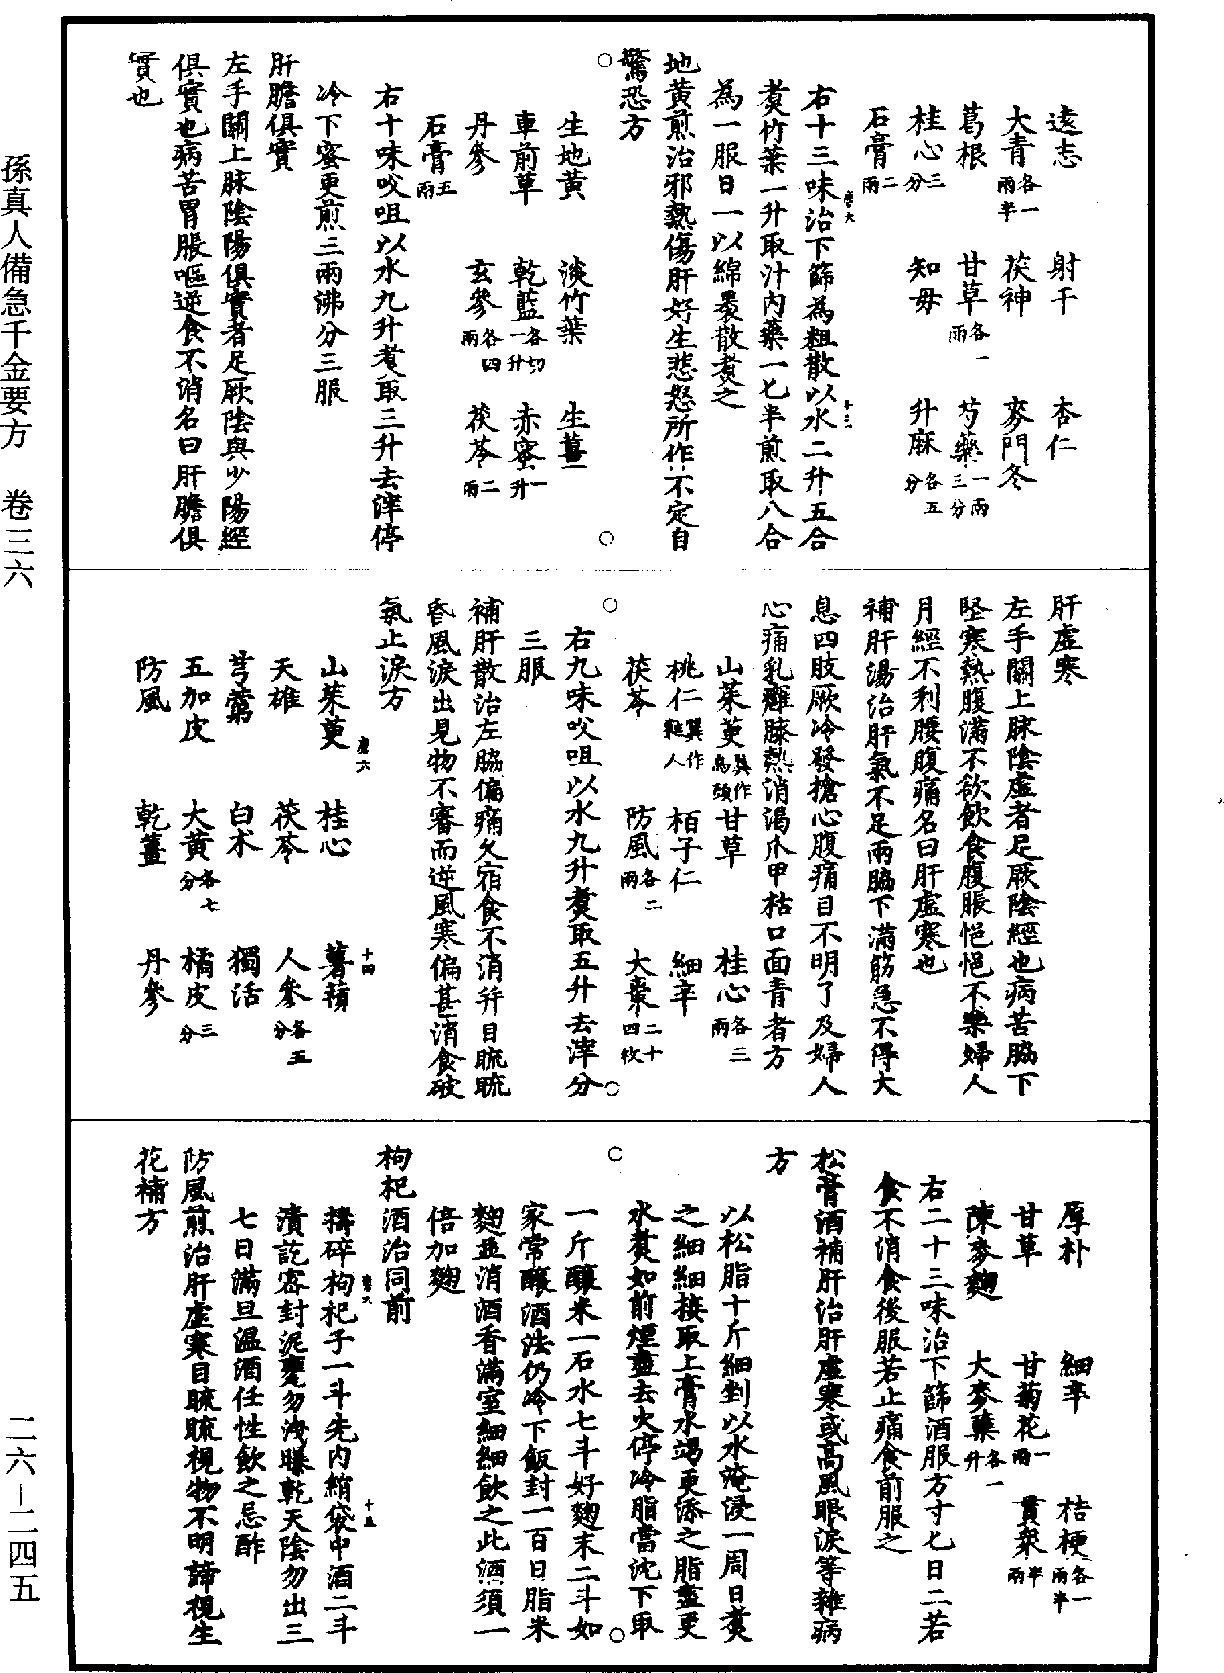 遠志　射干　杏仁
大青各一兩半　茯神　麥門冬
葛根　甘草各一兩　芍藥一兩三分
桂心三分　知母　升麻各五分
石膏二兩
右十三味治下篩為粗散以水二升五合
煑竹葉一升取汁內藥一匕半煎取八合
為一服日一以綿裹散煑之
地黃煎治邪熱傷肝好生悲怒所作不定自
驚恐方
生地黃　淡竹葉　生薑
車前草　乾藍各切一升　赤蜜一升
丹參　玄參各四兩　茯苓二兩
石膏五兩
右十味㕮咀以水九升煑取三升去滓停
冷下蜜更煎三兩沸分三服
肝膽俱實
左手關上脉陰陽俱實者足厥陰與少陽經
俱實也病苦胃脹嘔逆食不消名曰肝膽俱
實也
肝虛寒
左手關上脉陰虛者足厥陰經也病苦脇下
堅寒熱腹滿不欲飲食腹脹悒悒不樂婦人
月經不利腰腹痛名曰肝虛寒也
補肝湯治肝氣不足兩脇下滿筋急不得大
息四肢厥冷發搶心腹痛目不明了及婦人
心痛乳難膝熱消渴爪甲枯口面青者方
山茱萸異作烏頭　甘草　桂心各三兩
桃仁異作蕤人　栢子仁　細辛
茯苓　防風各二兩　大棗二十四枚
右九味㕮咀以水九升煑取五升去滓分
三服
補肝散治左脇偏痛久宿食不消并目䀮䀮
昏風淚出見物不審而逆風寒偏甚消食破
氣止淚方
山茱萸　桂心　薯蕷
天雄　茯苓　人參各五分
芎藭　白朮　獨活
五加皮　大黃各七分　橘皮三分
防風　乾薑　丹參
厚朴　細辛　桔梗各一兩半
甘草　甘菊花一兩　貫衆半兩
陳麥麴　大麥蘖各一升
右二十三味治下篩酒服方寸匕日二若
食不消食後服若止痛食前服之
松膏酒補肝治肝虛寒或高風眼淚等雜病
方
以松脂十斤細剉以水淹浸一周日煑
之細細接取上膏水竭更添之脂盡更
水煑如前煙盡去火停冷脂當沈下取
一斤釀米一石水七斗好麴末二斗如
家常釀酒法仍冷下飯封一百日脂米
麴並消酒香滿室細細飲之此酒須一
倍加麴
枸杞酒治同前
擣碎枸杞子一斗先內絹袋中酒二斗
漬訖密封泥甕勿洩曝乾天陰勿出三
七日滿旦溫酒任性飲之忌酢
防風煎治肝虛寒目䀮䀮視物不明諦視生
花補方
孫真人備急千金要方　卷三六
二六－二四五